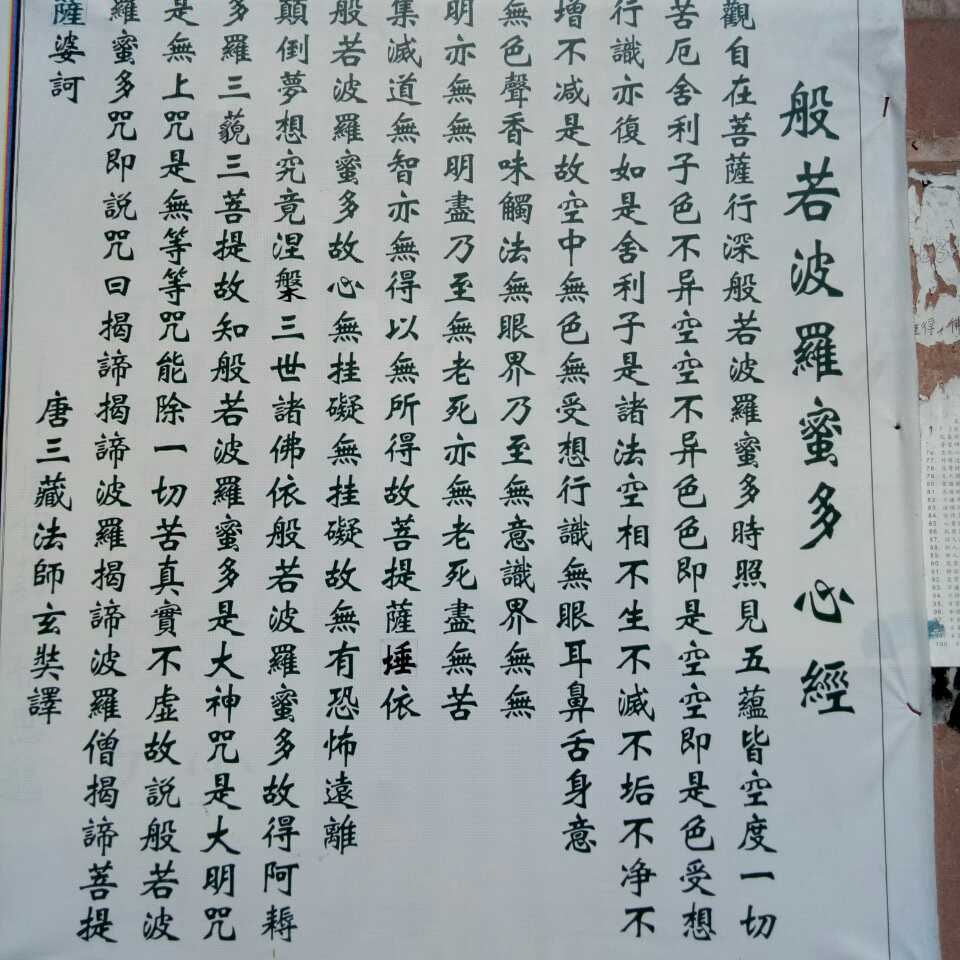 般若波羅蜜多心經
觀自在菩薩行深般若波羅蜜多時照見五蘊皆空度一切
苦厄舍利子色不异空空不异色色即是空空即是色受想
行識亦復如是舍利子是諸法空相不生不滅不垢不净不
增不减是故空中無色無受想行識無眼耳鼻舌身意
無色聲香味觸法無眼界乃至無意識界無無
明亦無無明盡乃至無老死亦無老死盡無苦
集滅道無智亦無得以無所得故菩提薩埵依
般若波羅蜜多故心無挂礙無挂礙故無有恐怖遠離
顛倒夢想究竟涅槃三世諸佛依般若波羅蜜多故得阿耨
多羅三藐三菩提故知般若波羅蜜多是大神咒是大明咒
是無上咒是無等等咒能除一切苦真實不虛故説般若波
羅蜜多咒即説咒曰揭諦揭諦波羅揭諦波羅僧揭諦菩提
薩婆訶
唐三藏法師玄奘譯